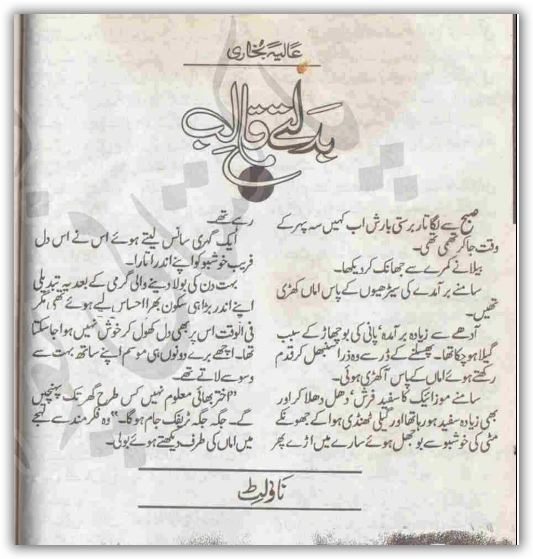 عالیہ بخاری
بدلتے قالب
صبح سے لگاتار برستی بارش اب کہیں سہ پہر کے
وقت جا کر تھمی تھی۔
بیلا نے کمرے سے جھانک کر دیکھا۔
سامنے برآمدے کی سیڑھیوں کے پاس اماں کھڑی
تھیں۔
آدھے سے زیادہ برآمدہ، پانی کی بوچھاڑ کے سبب
گیلا ہو چکا تھا۔ پھسلنے کے ڈر سے وہ ذرا سنبھل کر قدم
رکھتے ہوئے اماں کے پاس آ کھڑی ہوئی۔
سامنے موزائیک کا سفید فرش، دھل دھلا کر اور
بھی زیادہ سفید ہو رہا تھا اور گیلی ٹھنڈی ہوا کے جھونکے
مٹی کی خوشبو سے بوجھل ہوئے سارے میں اڑے پھر
رہے تھے۔
ایک گہری سانس لیتے ہوئے اس نے اس دل
فریب خوشبو کو اپنے اندر اتارا۔
بہت دن کی بولا دینے والی گرمی کے بعد یہ تبدیلی
اپنے اندر بڑا ہی سکون بھرا احساس لیے ہوئے تھی مگر
فی الوقت اس پر بھی دل کھول کر خوش نہیں ہوا جا سکتا
تھا۔ اچھے برے دونوں ہی موسم اپنے ساتھ بہت سے
وسوسے لاتے تھے۔
”اختر بھائی معلوم نہیں کس طرح گھر تک پہنچیں
گے۔ جگہ جگہ ٹریفک جام ہو گا۔“ وہ فکر مند سے لہجے
میں اماں کی طرف دیکھتے ہوئے بولی۔
ناولٹ